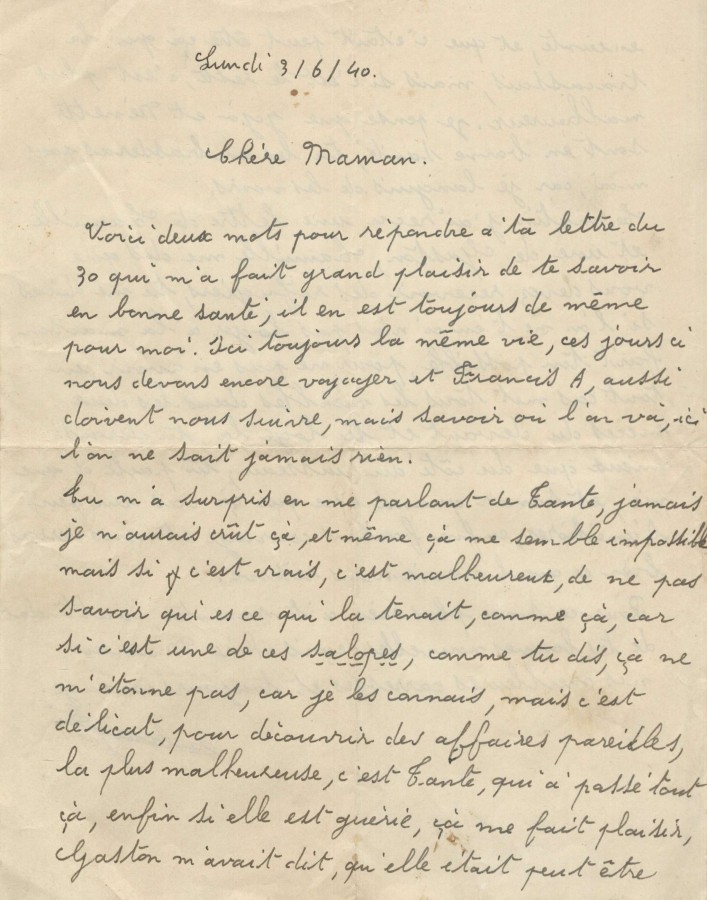 Lundi 3/6/40.
Chère Maman.
Voici deux mots pour répondre a ta lettre du
30 qui m'a fait grand plaisir de te savoir
en bonne santé, il en est toujours de même
pour moi. Ici toujours la même vie, ces jours ci
nous devons encore voyager et Francis A, aussi
doivent nous suivre, mais savoir où l'on va, ici
l'on ne sait jamais rien.
Tu m'a surpris en me parlant de Tante, jamais
je n'aurais crût çà, et même çà me semble impossible
mais si c'est vrais, c'est malheureux, de ne pas
savoir qui es ce qui la tenait, comme çà, car
si c'est une de ces salopes, comme tu dis, çà ne
m'étonne pas, car je les connais, mais c'est
délicat, pour découvrir des affaires pareilles,
la plus malheureuse, c'est Tante, qui a passé tout
çà, enfin si elle est guérie, çà me fait plaisir,
Gaston m'avait dit, qu'elle était peut être